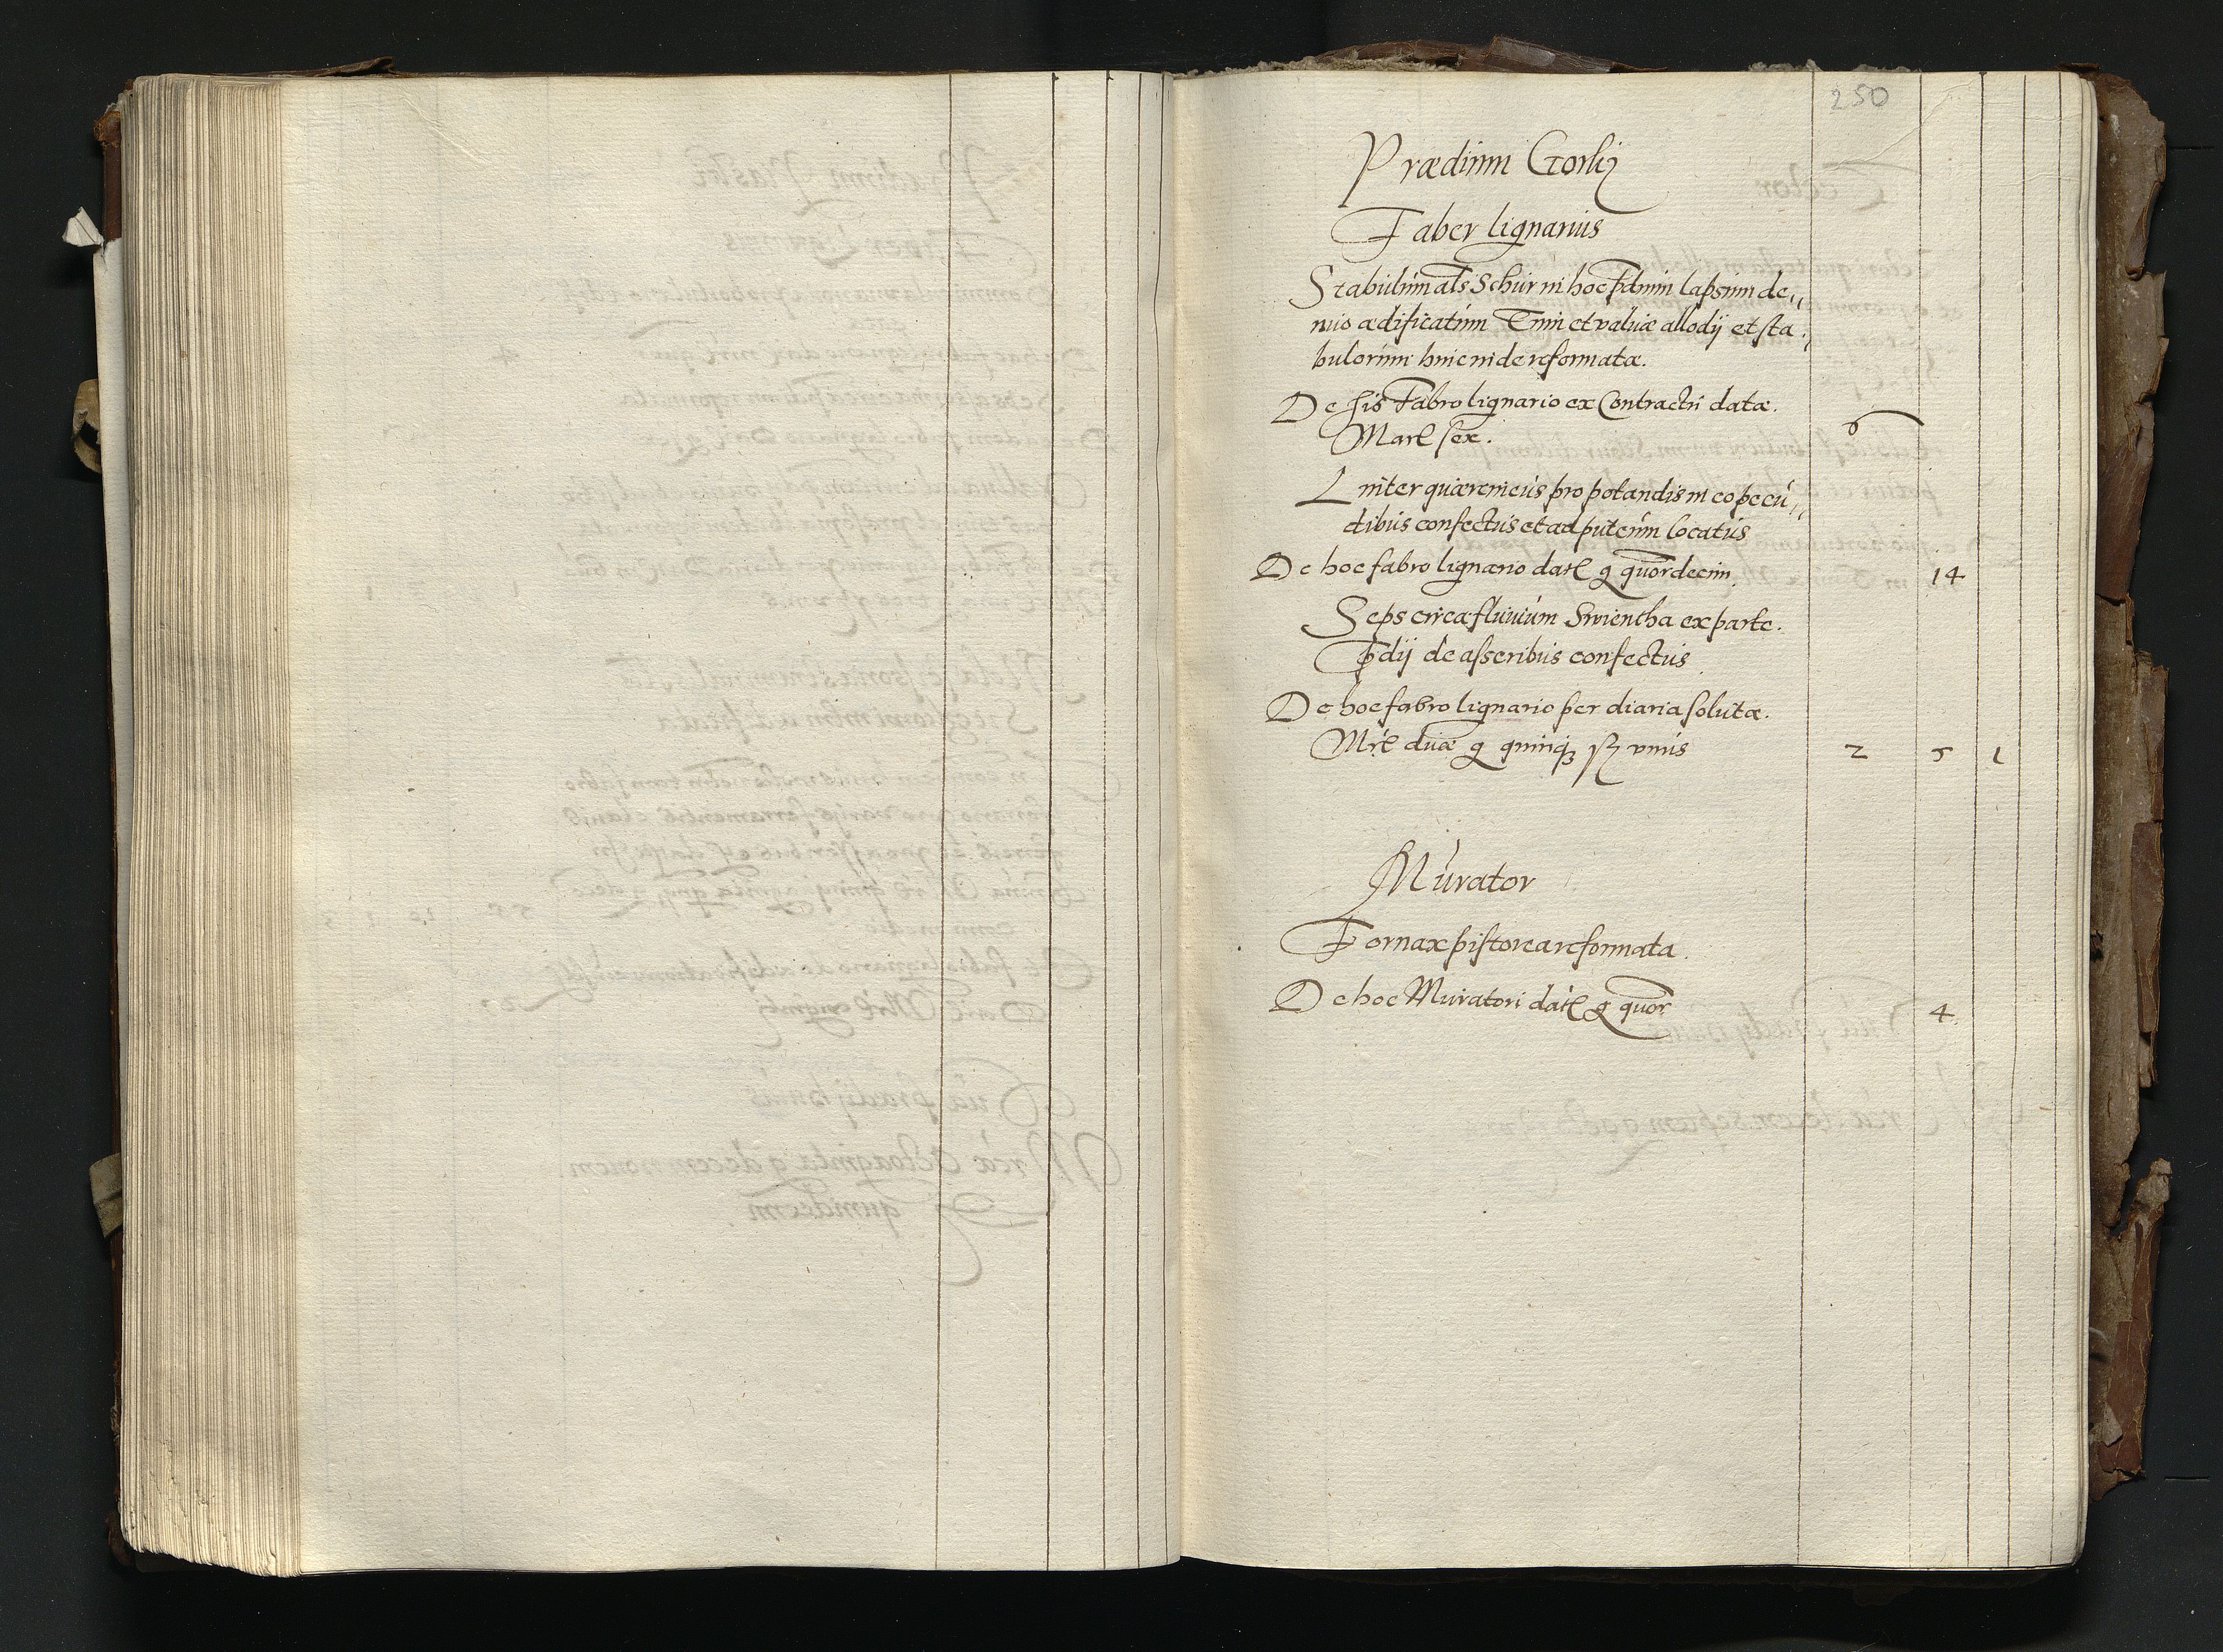 250
Prædium Gorliz
Faber lignarius
Stabulum als Schur in hoc prdium lapsum de„
nuo ædificatum Tum et valuæ allodij et sta„
bulorum hinc inde reformatæ.
De his Fabro lignario ex Contractu datæ.
Marc sex. 6
Linter quærcineus pro potandis in eo pecu„
dibus confectus et ad puteum locatus
De hoc fabro lignario datc g quordecim. 14
Seps circa fluuium Swientha ex parte.
prdij de asseribus confectus
De hoc fabro lignario per diaria solutæ.
Mrc duæ g quinq; ß vnus 2 5 1
Murator
Fornax pistorea reformata.
De hoc Muratori datc g quor 4.